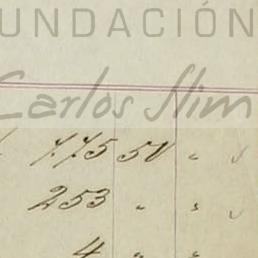 FUNDACIÓN
Carlos Slim
775 50 " ✓
253 " " ✓
4 " "